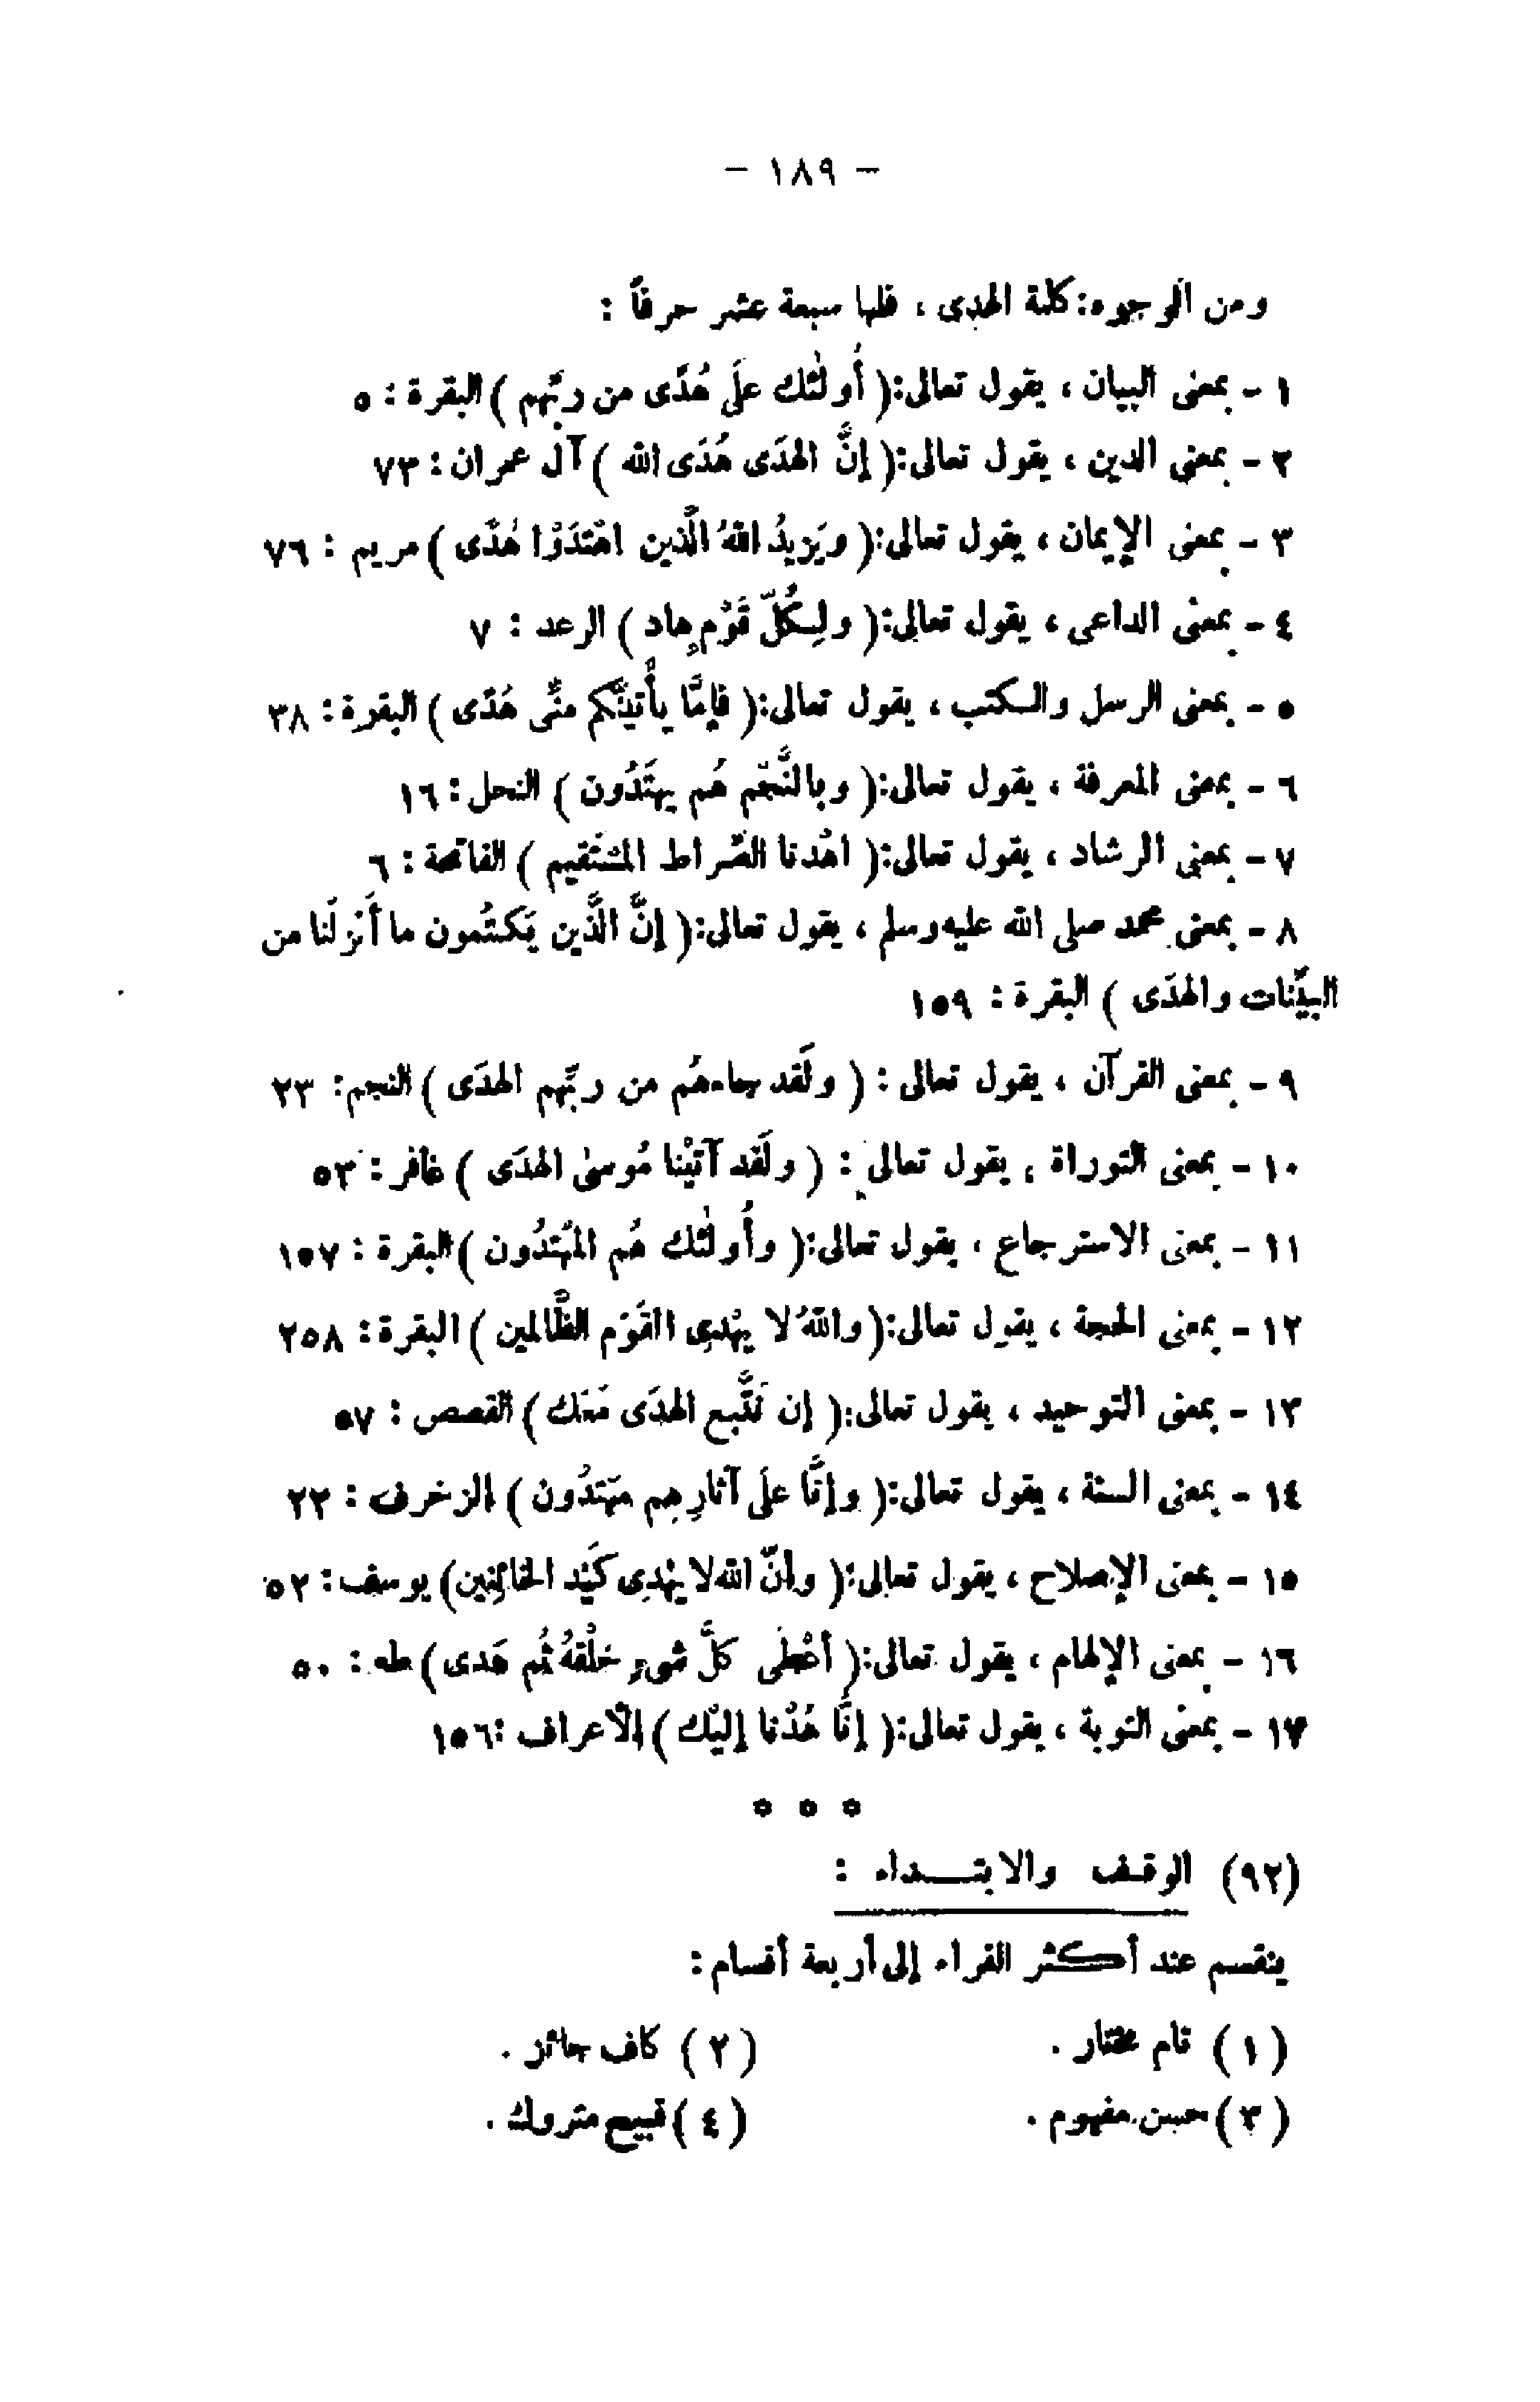 - ١٨٩ -
ومن الوجوه: كلمة الهدى ، فلها سبعة عشر حرفاً :
١ - بمعنى البيان ، يقول تعالى:( أُولٰئك علَى هُدًى من ربِّهم ) البقرة : ٥
٢ - بمعنى الدين ، يقول تعالى:( إنَّ الهدَى هُدَى الله ) آل عمران : ٧٣
٣ - بمعنى الإيمان ، يقول تعالى:( ويَزيدُ اللهُ الَّذين اهْتدَوْا هُدًى ) مريم : ٧٦
٤ - بمعنى الداعى ، يقول تعالى:( ولِكُلِّ قَوْمٍ هاد ) الرعد : ٧
٥ - بمعنى الرسل والكتب ، يقول تعالى:( فإمَّا يأْتينَّكم منِّى هُدًى ) البقرة : ٣٨
٦ - بمعنى المعرفة ، يقول تعالى:( وبالنَّجْم هُم يهتَدُون ) النحل : ١٦
٧ - بمعنى الرشاد ، يقول تعالى:( اهْدنا الصِّراط المسْتَقيم ) الفاتحة : ٦
٨ - بمعنى محمد صلى الله عليه وسلم ، يقول تعالى:( إنَّ الَّذين يَكتُمون ما أَنْزلْنا من
البيِّنات والهدَى ) البقرة : ١٥٩
٩ - بمعنى القرآن ، يقول تعالى : ( ولَقد جاءهُم من ربِّهم الهدَى ) النجم : ٢٣
١٠ - بمعنى التوراة ، يقول تعالى : ( ولَقد آتيْنا مُوسىٰ الهدَى ) غافر : ٥٣
١١ - بمعنى الاسترجاع ، يقول تعالى:( وأُولٰئك هُم المهْتدُون ) البقرة : ١٥٧
١٢ - بمعنى الحجة ، يقول تعالى:( واللهُ لا يهْدِى القَوْم الظَّالمين ) البقرة : ٢٥٨
١٣ - بمعنى التوحيد ، يقول تعالى:( إن نَتَّبع الهدَى مَعَك ) القصص : ٥٧
١٤ - بمعنى السنة ، يقول تعالى:( وإنَّا علَى آثارِهِم مهْتَدُون ) الزخرف : ٢٢
١٥ - بمعنى الإصلاح ، يقول تعالى:( وأنَّ الله لا يهْدِى كَيْد الخائنِين ) يوسف : ٥٢
١٦ - بمعنى الإلهام ، يقول تعالى:( أعْطَى كلَّ شىءٍ خلْقهُ ثُم هَدى ) طه : ٥٠
١٧ - بمعنى التوبة ، يقول تعالى:( إنَّا هُدْنا إليْك ) الأعراف : ١٥٦
* * *
(٩٢) الوقف والابتداء :
ينقسم عند أكثر القراء إلى أربعة أقسام :
( ١ ) تام مختار . ( ٢ ) كاف جائز .
( ٣ ) حسن مفهوم . ( ٤ ) قبيح متروك .